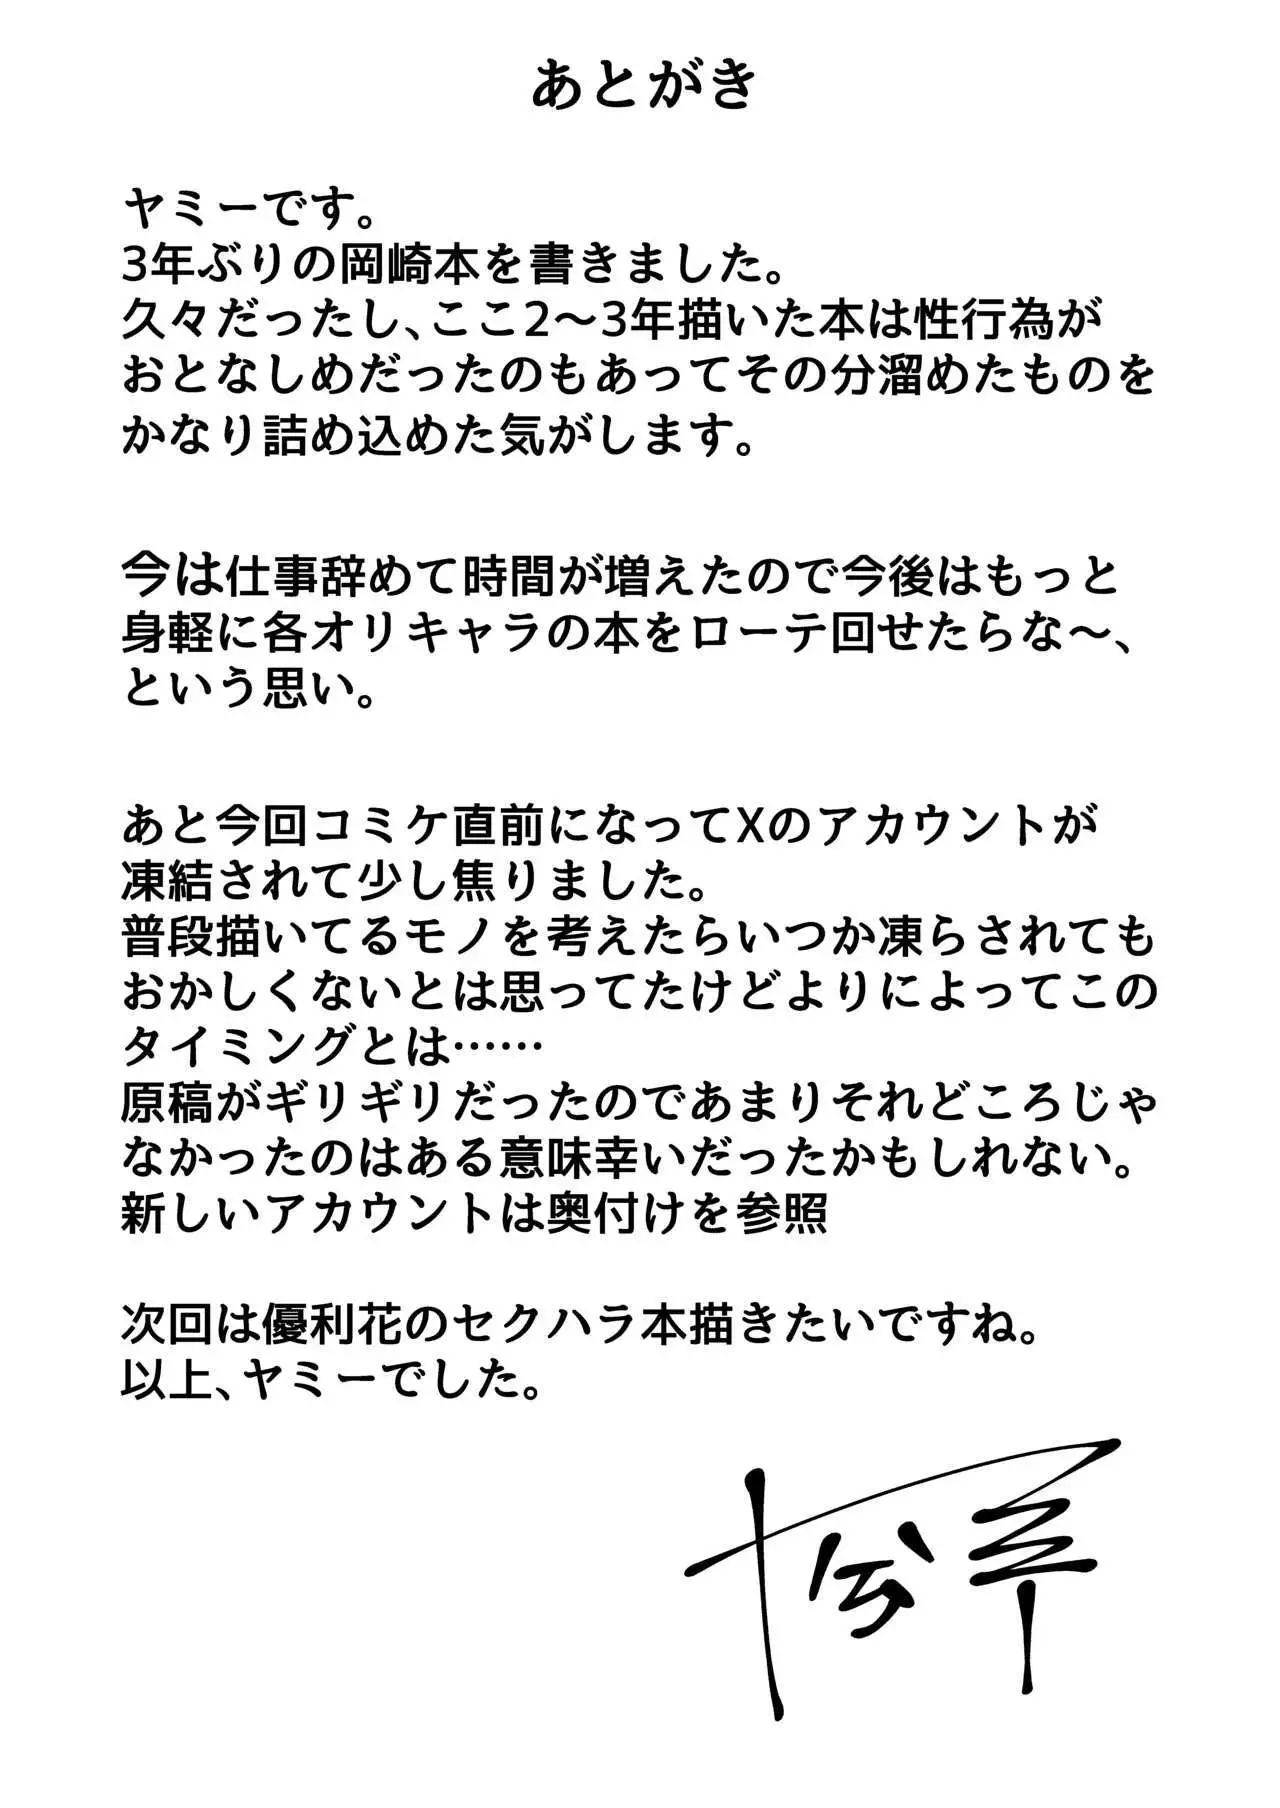 あとがき
ヤミーです。
3年ぶりの岡崎本を書きました。
久々だったし、ここ2～3年描いた本は性行為が
おとなしめだったのもあってその分溜めたものを
かなり詰め込めた気がします。
今は仕事辞めて時間が増えたので今後はもっと
身軽に各オリキャラの本をローテ回せたらな～、
という思い。
あと今回コミケ直前になってXのアカウントが
凍結されて少し焦りました。
普段描いてるモノを考えたらいつか凍らされても
おかしくないとは思ってたけどよりによってこの
タイミングとは……
原稿がギリギリだったのであまりそれどころじゃ
なかったのはある意味幸いだったかもしれない。
新しいアカウントは奥付けを参照
次回は優利花のセクハラ本描きたいですね。
以上、ヤミーでした。